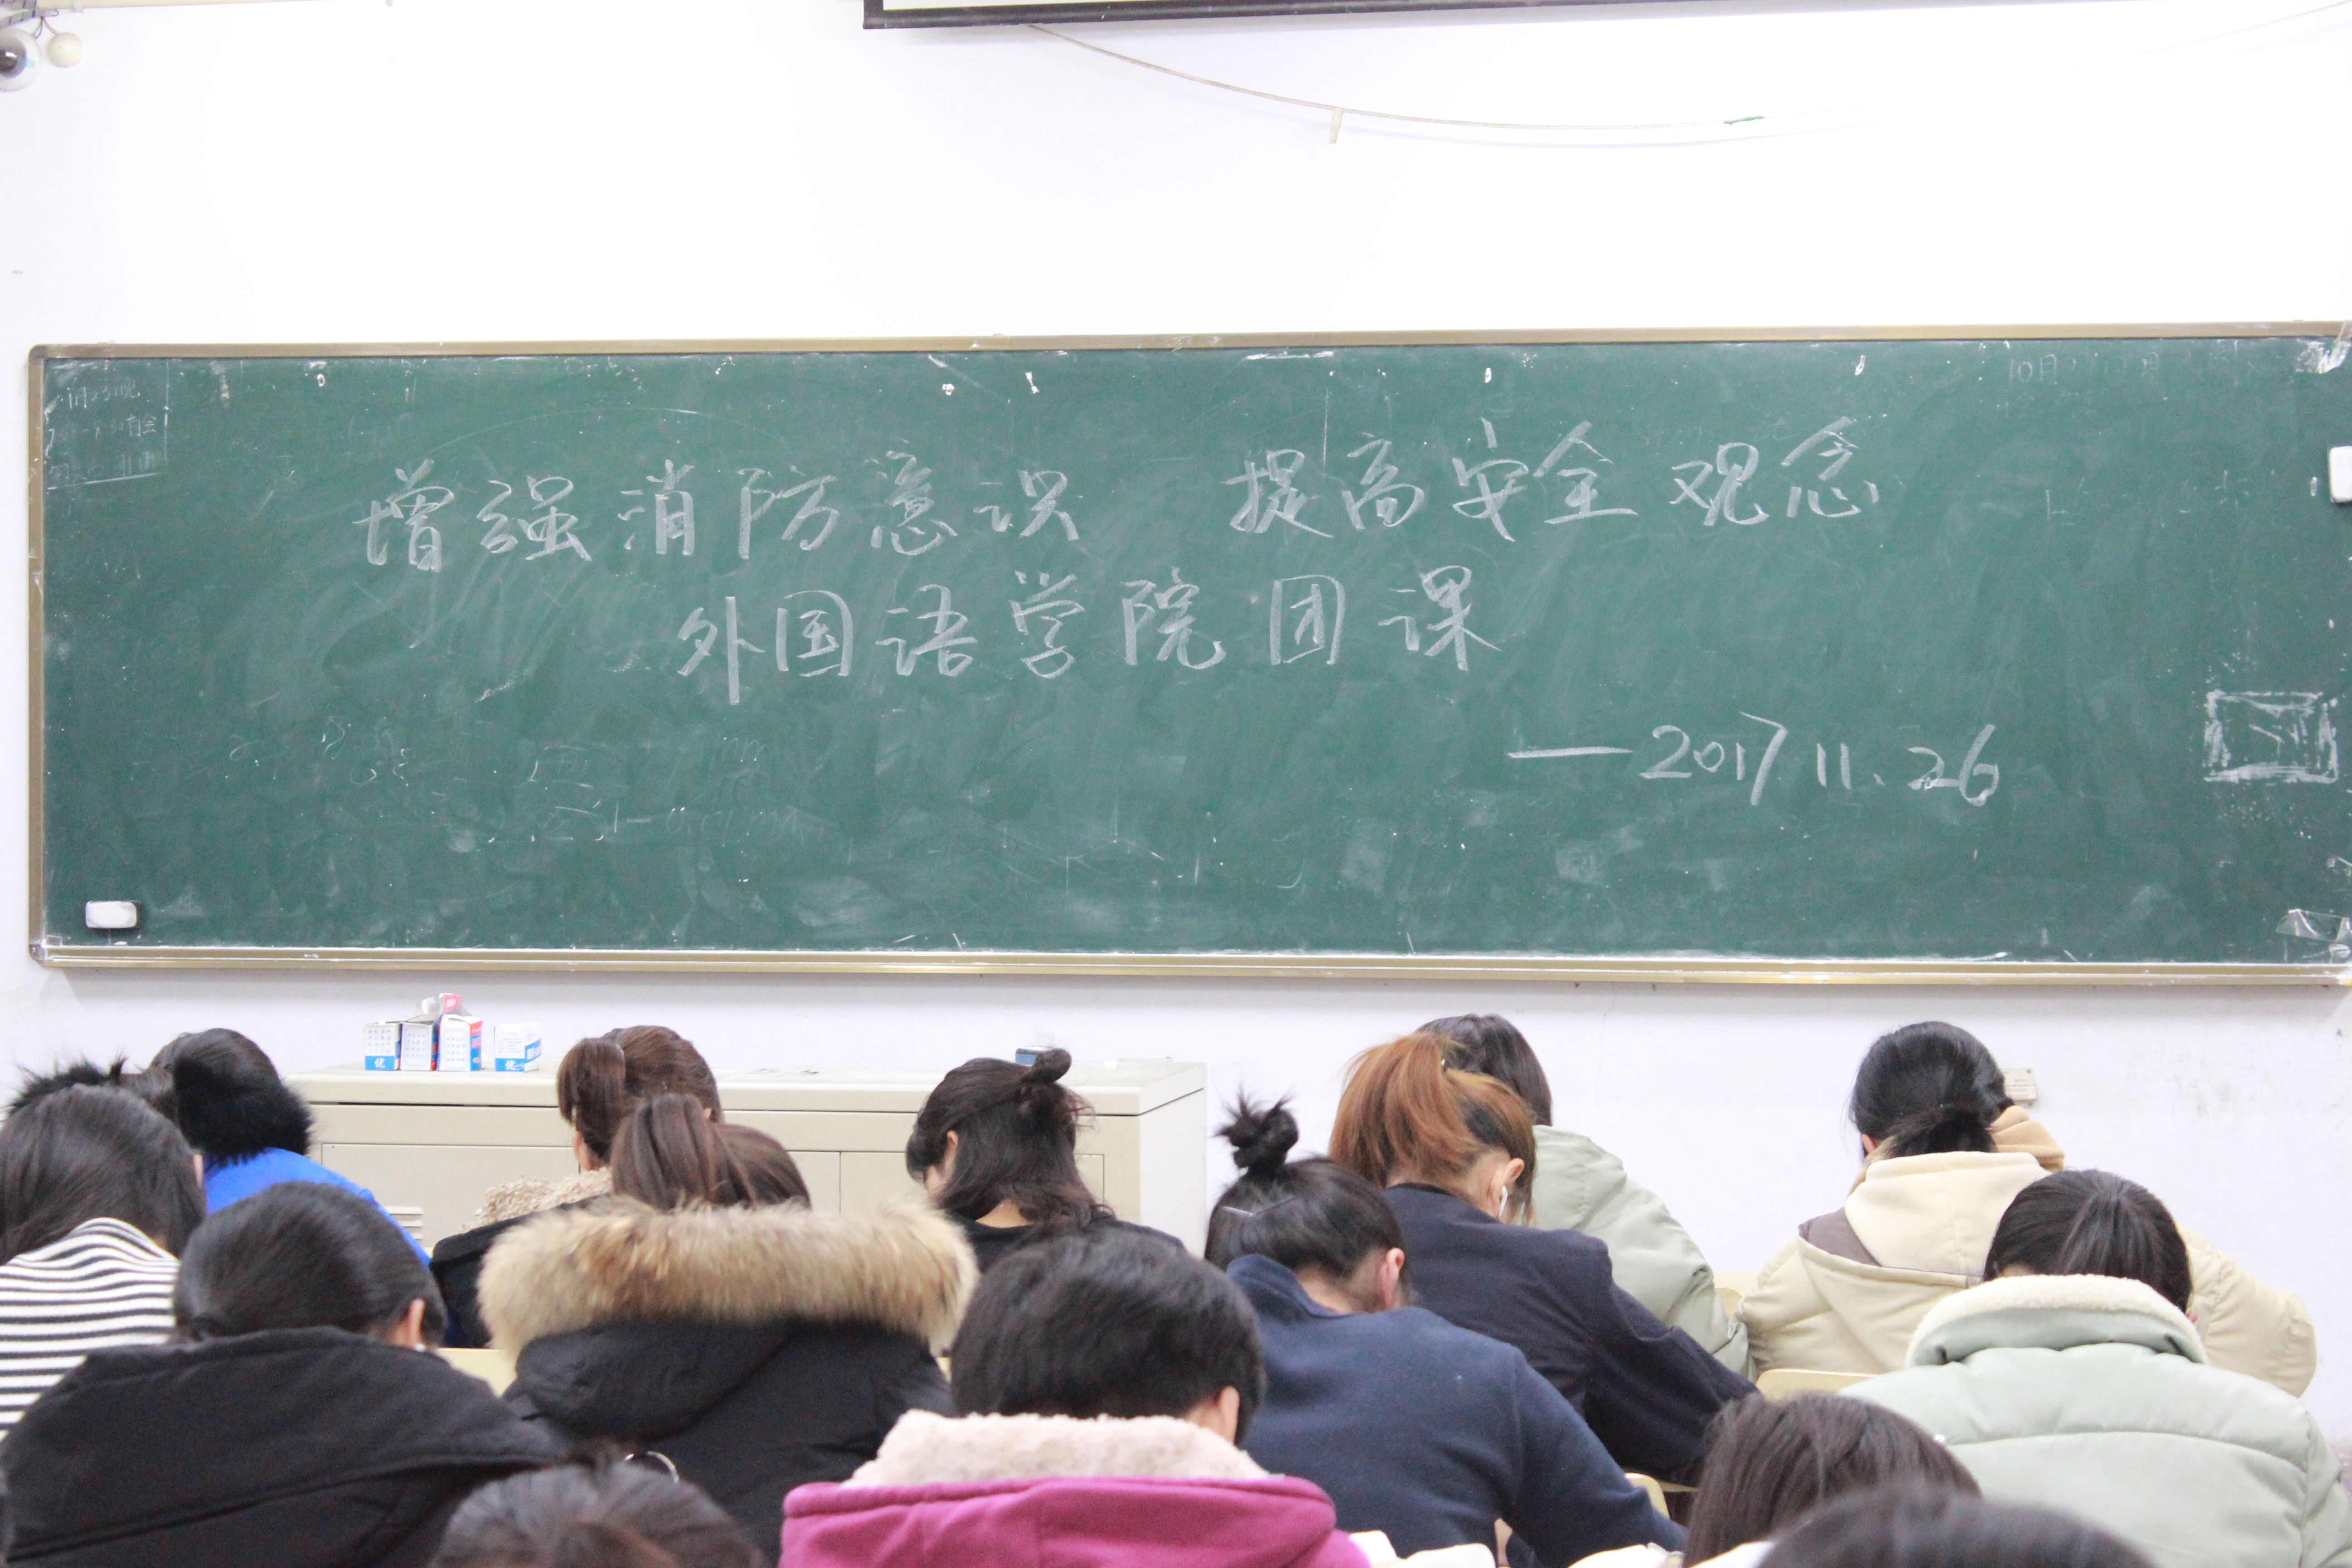 增强消防意识 提高安全观念
外国语学院团课
—2017.11.26
优
优